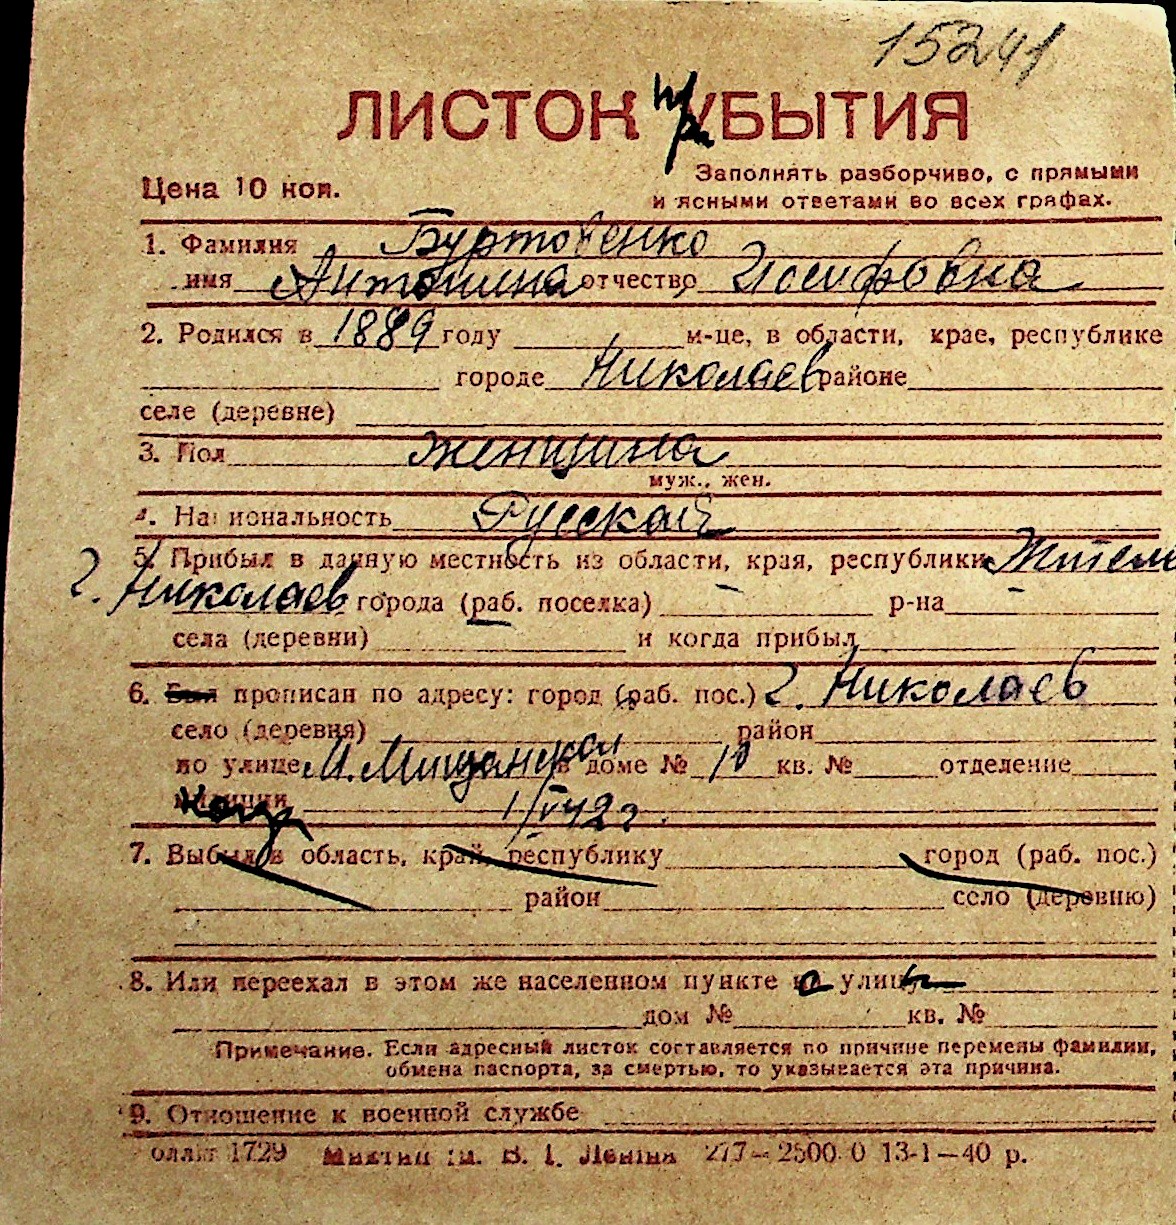 15241
ЛИСТОК пр УБЫТИЯ
Цена 10 коп.
Заполнять разборчиво, с прямыми
и ясными ответами во всех графах.
1. Фамилия Буртовенко
имя Антонина отчество Иосифовна
2. Родился в 1889 году м-це, в области, крае, республике
городе Николаев районе
селе (деревне)
3. Пол женщина
муж., жен.
4. Национальность Русская
5. Прибыл в данную местность из области, края, республики Жител
г. Николаев города (раб. поселка) р-на
села (деревни) и когда прибыл
6. Был прописан по адресу: город (раб. пос.) г. Николаев
село (деревня) район
по улице М. Мищанской в доме № 10 кв. № отделение
милиции 1/VI 42 г.
7. Выбыл в область, край, республику город (раб. пос.)
район село (деревню)
8. Или переехал в этом же населенном пункте с улицы
дом № кв. №
Примечание. Если адресный листок составляется по причине перемены фамилии,
обмена паспорта, за смертью, то указывается эта причина.
9. Отношение к военной службе
1729 Леніна 277—2500.0 13-1—40 р.